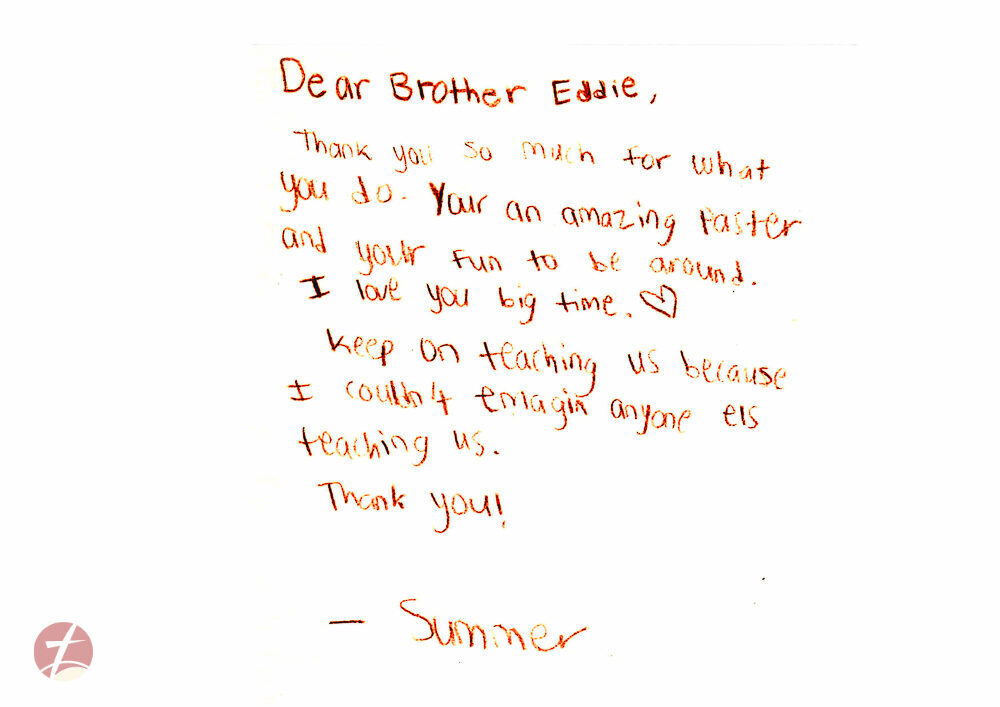 Dear Brother Eddie,
Thank you so much for what
you do. Your an amazing Paster
and your fun to be around.
I love you big time.
Keep on teaching us because
I couldn't emagin anyone els
teaching us.
Thank you!
— Summer